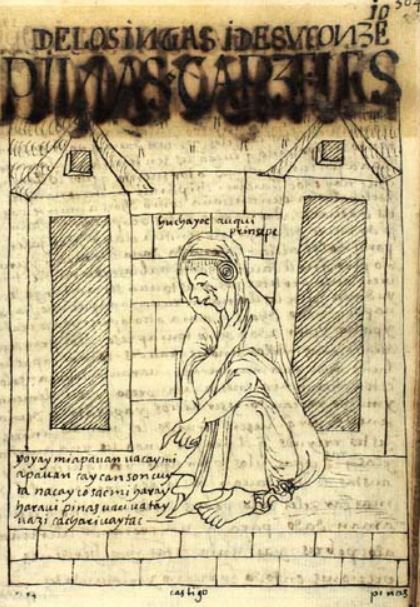 304
io
DELOSINGASIDESVCONZE
PINAS CARZELES
huchayoc auqui
prinsepe
yoyaymi apauan uacaymi
apauan cay can son cuy
ta nacaycosacmi haray
haraui pinas uaci uatay
uazi cachariuaytac
castigo
pinas